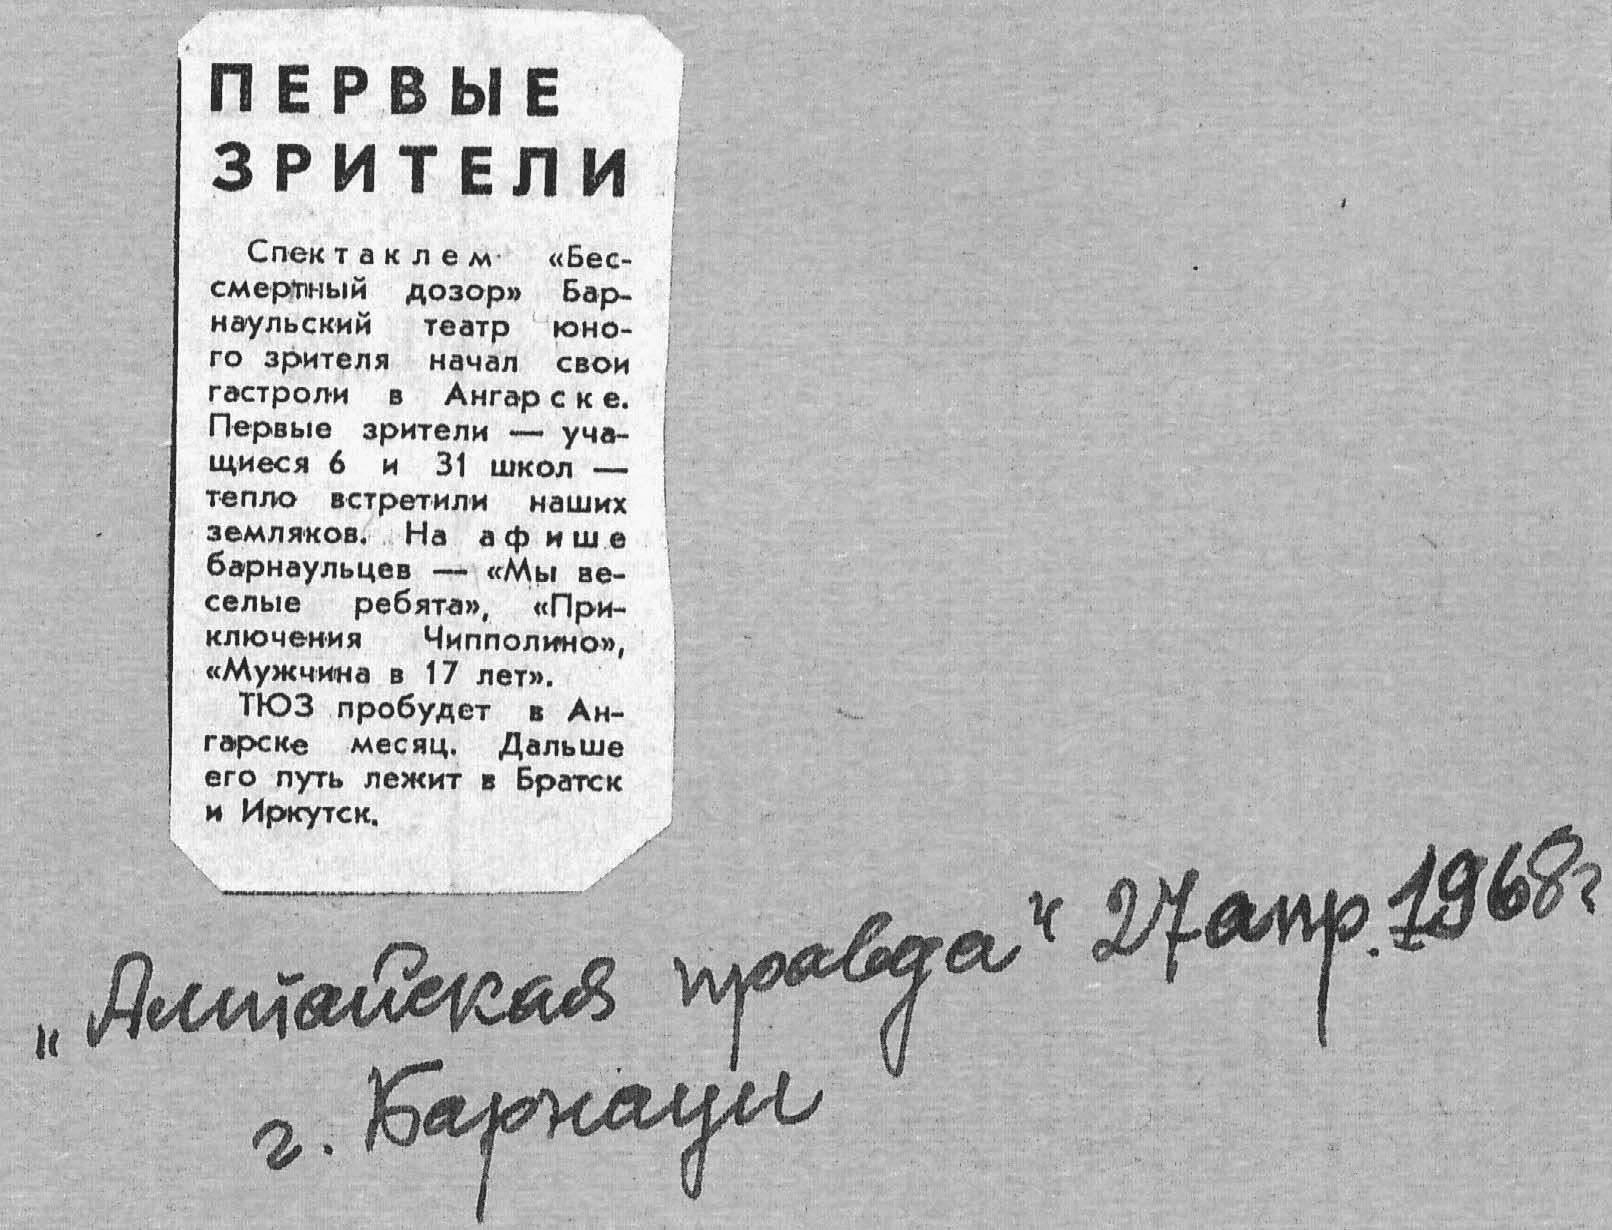 ПЕРВЫЕ
ЗРИТЕЛИ
Спектаклем «Бес-
смертный дозор» Бар-
наульский театр юно-
го зрителя начал свои
гастроли в Ангарске.
Первые зрители — уча-
щиеся 6 и 31 школ —
тепло встретили наших
земляков. На афише
барнаульцев — «Мы ве-
селые ребята», «При-
ключения Чипполино»,
«Мужчина в 17 лет».
ТЮЗ пробудет в Ан-
гарске месяц. Дальше
его путь лежит в Братск
и Иркутск.
„Алтайская правда“ 27 апр. 1968г
г. Барнаул